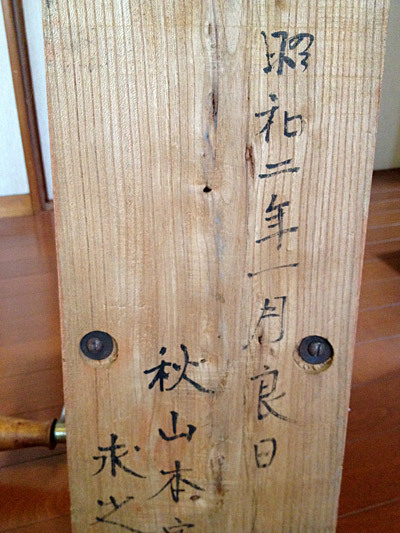 昭和二年一月良日
秋山本家
求之